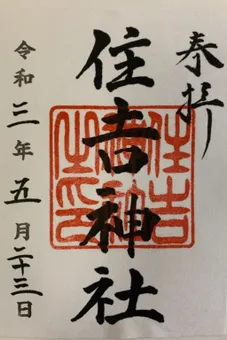 奉拝
住吉神社
住吉神社之印
令和三年五月二十三日